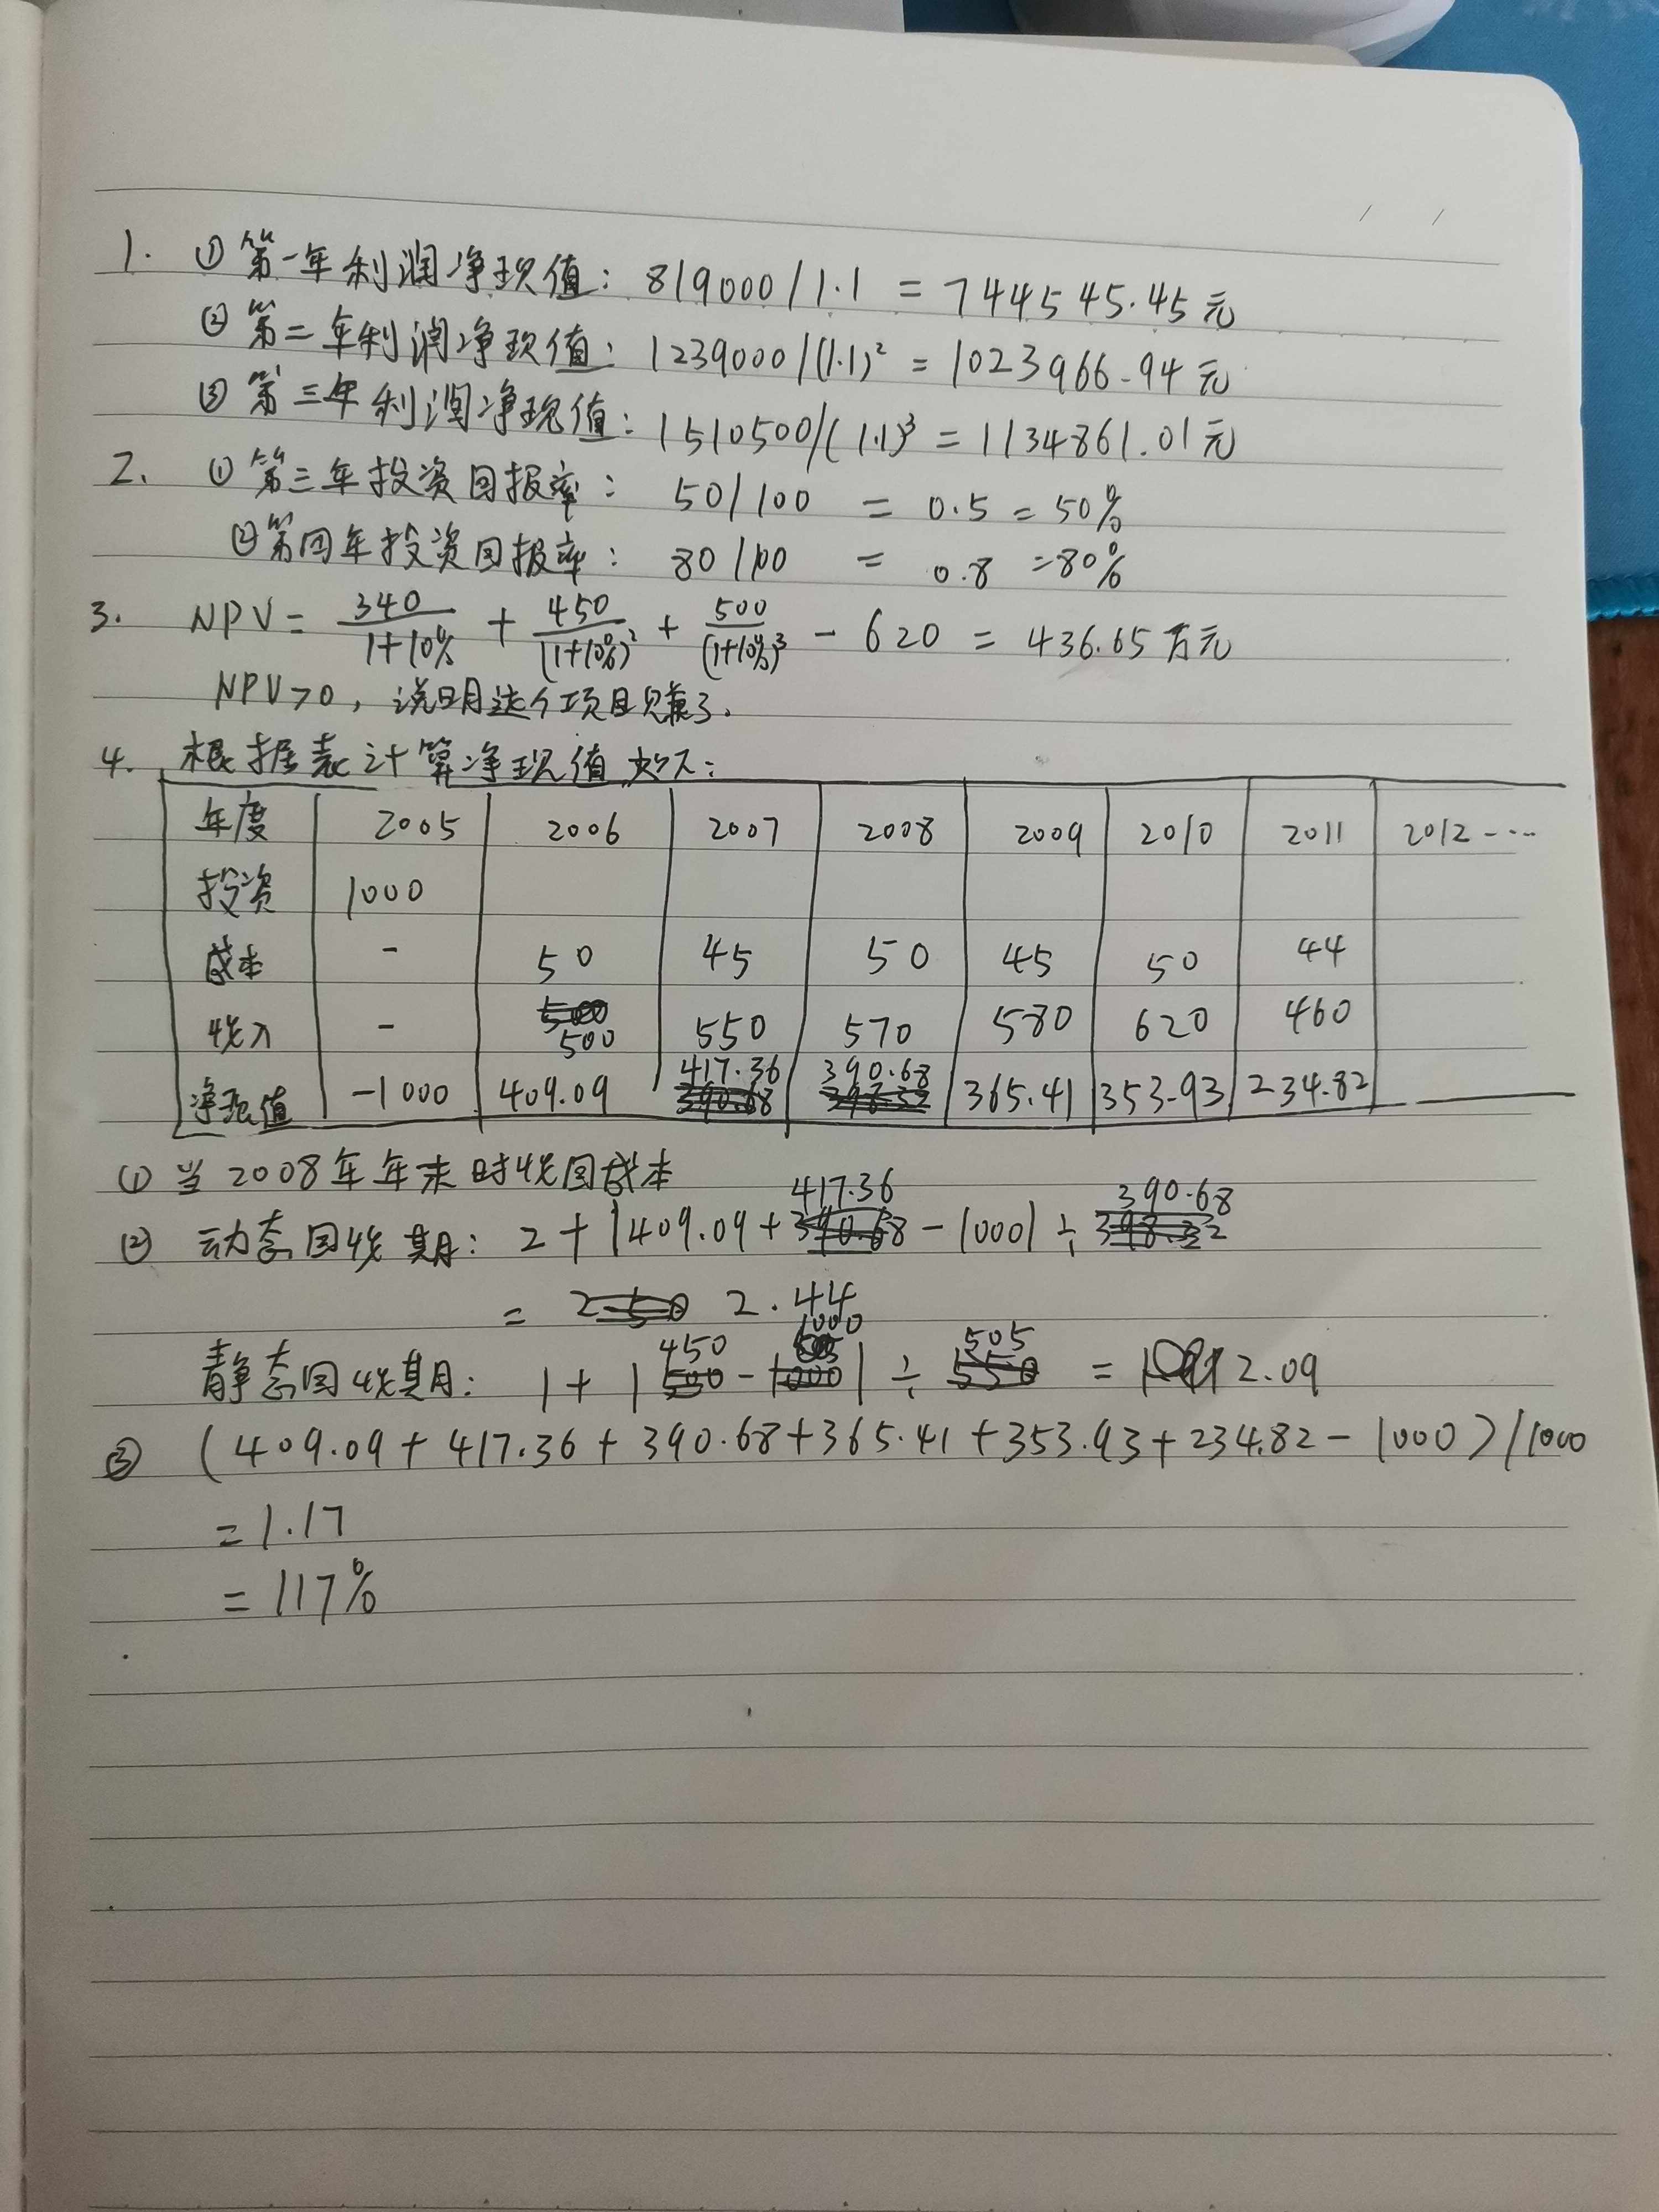 1. ① 第一年利润净现值: 819000/1.1 = 744545.45元
② 第二年利润净现值: 1239000/(1.1)² = 1023966.94元
③ 第三年利润净现值: 1510500/(1.1)³ = 1134861.01元
2. ① 第三年投资回报率: 50/100 = 0.5 = 50%
② 第四年投资回报率: 80/100 = 0.8 = 80%
3. NPV = 340/(1+10%) + 450/(1+10%)² + 500/(1+10%)³ - 620 = 436.65万元
NPV>0, 说明这个项目赚了.
4. 根据表计算净现值如下:
年度 2005 2006 2007 2008 2009 2010 2011 2012 ----
投资 1000
成本 - 50 45 50 45 50 44
收入 - 500 550 570 580 620 460
净现值 -1000 409.09 417.36 390.68 365.41 353.93 234.82
① 当2008年年末时收回成本
② 动态回收期: 2+|409.09+417.36-1000|÷390.68
= 2.44
静态回收期: 1+|450-1000|÷505 = 2.09
③ (409.09+417.36+390.68+365.41+353.93+234.82-1000)/1000
= 1.17
= 117%